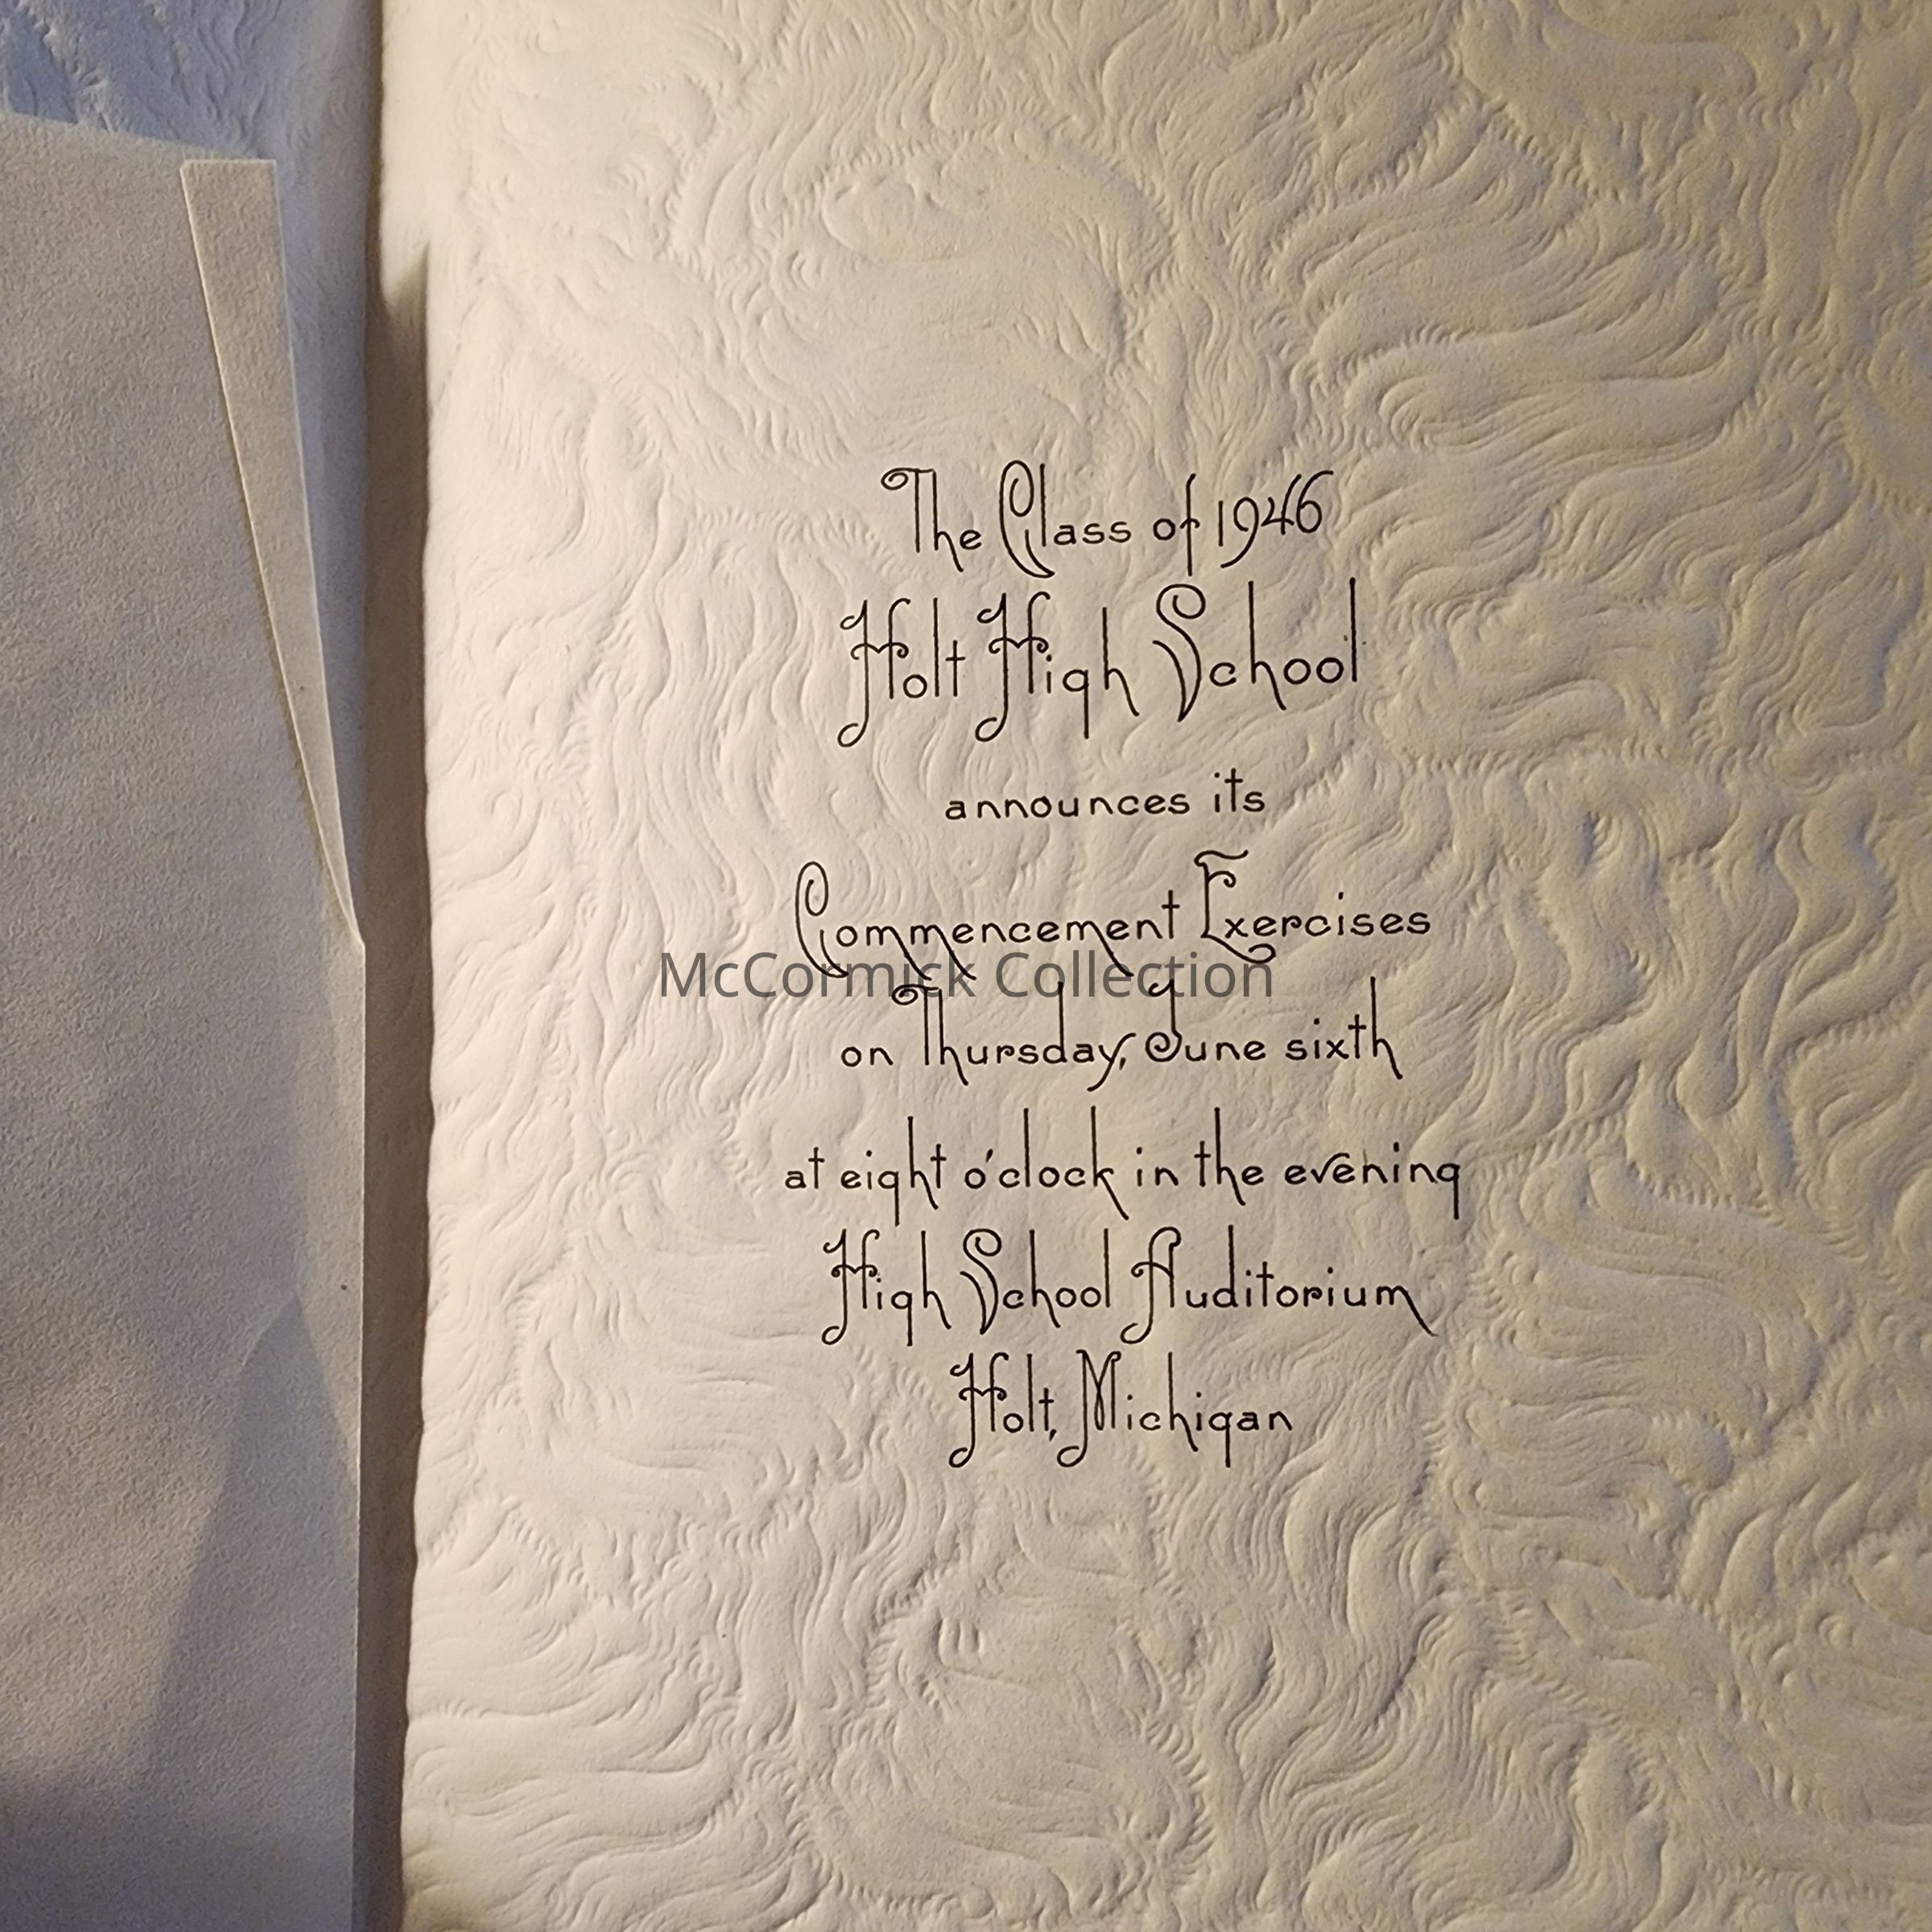 The Class of 1946
Holt High School
announces its
Commencement Exercises
McCormick Collection
on Thursday, June sixth
at eight o'clock in the evening
High School Auditorium
Holt, Michigan